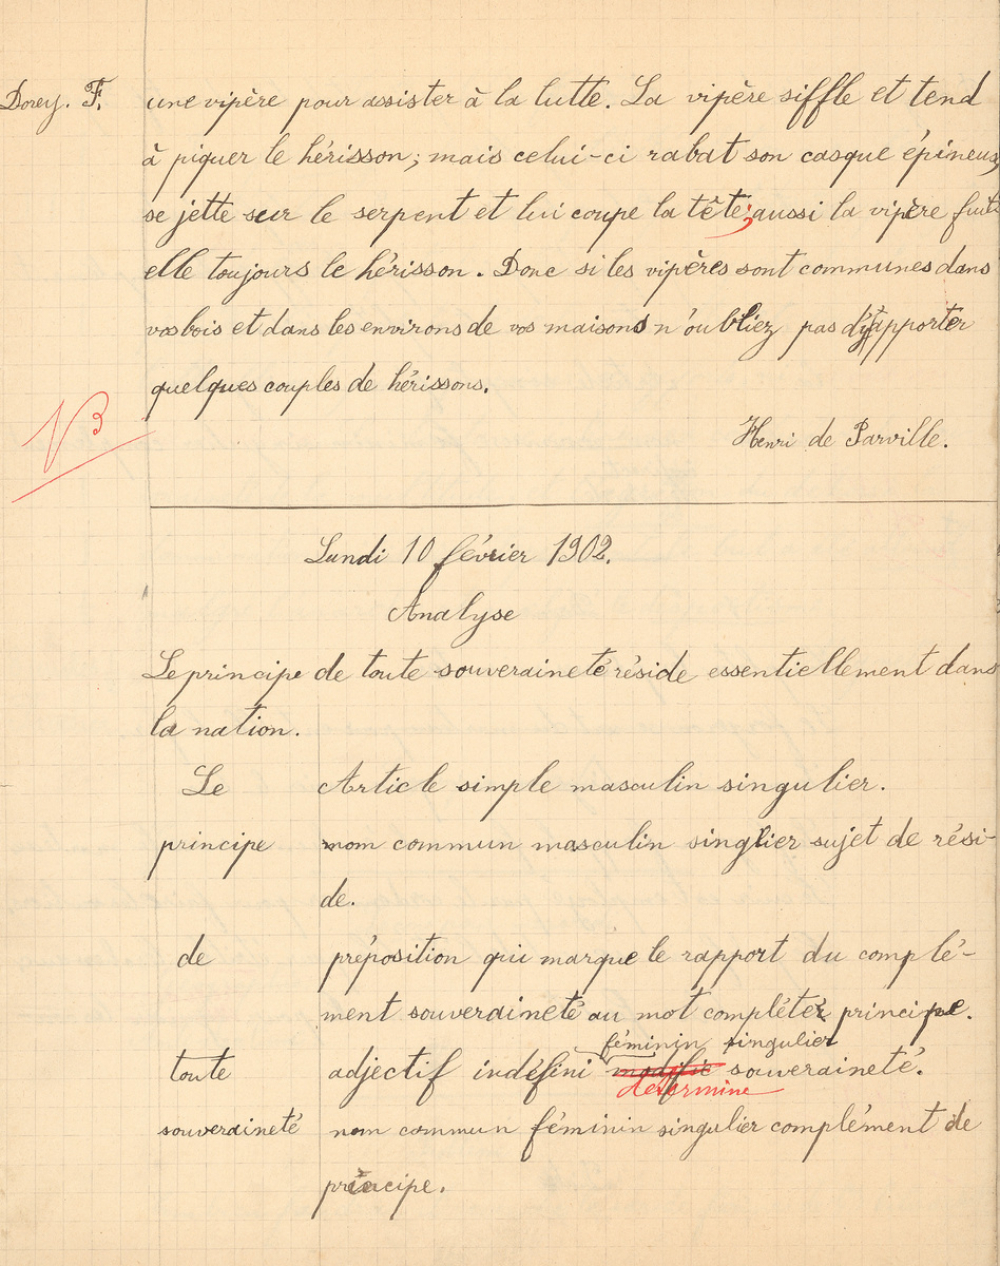 Dorey. F.
une vipère pour assister à la lutte. La vipère siffle et tend
à piquer le hérisson; mais celui-ci rabat son casque épineux,
se jette sur le serpent et lui coupe la tête; aussi la vipère fuit
elle toujours le hérisson. Donc si les vipères sont communes dans
vos bois et dans les environs de vos maisons n'oubliez pas d'y apporter
quelques couples de hérissons.
Henri de Parville.
Lundi 10 février 1902.
Analyse
Le principe de toute souveraineté réside essentiellement dans
la nation.
Le Article simple masculin singulier.
principe nom commun masculin singlier sujet de rési-
de.
de préposition qui marque le rapport du complé-
ment souveraineté au mot complété principe.
féminin singulier
toute adjectif indéfini modifie souveraineté.
détermine
souveraineté nom commun féminin singulier complément de
principe.